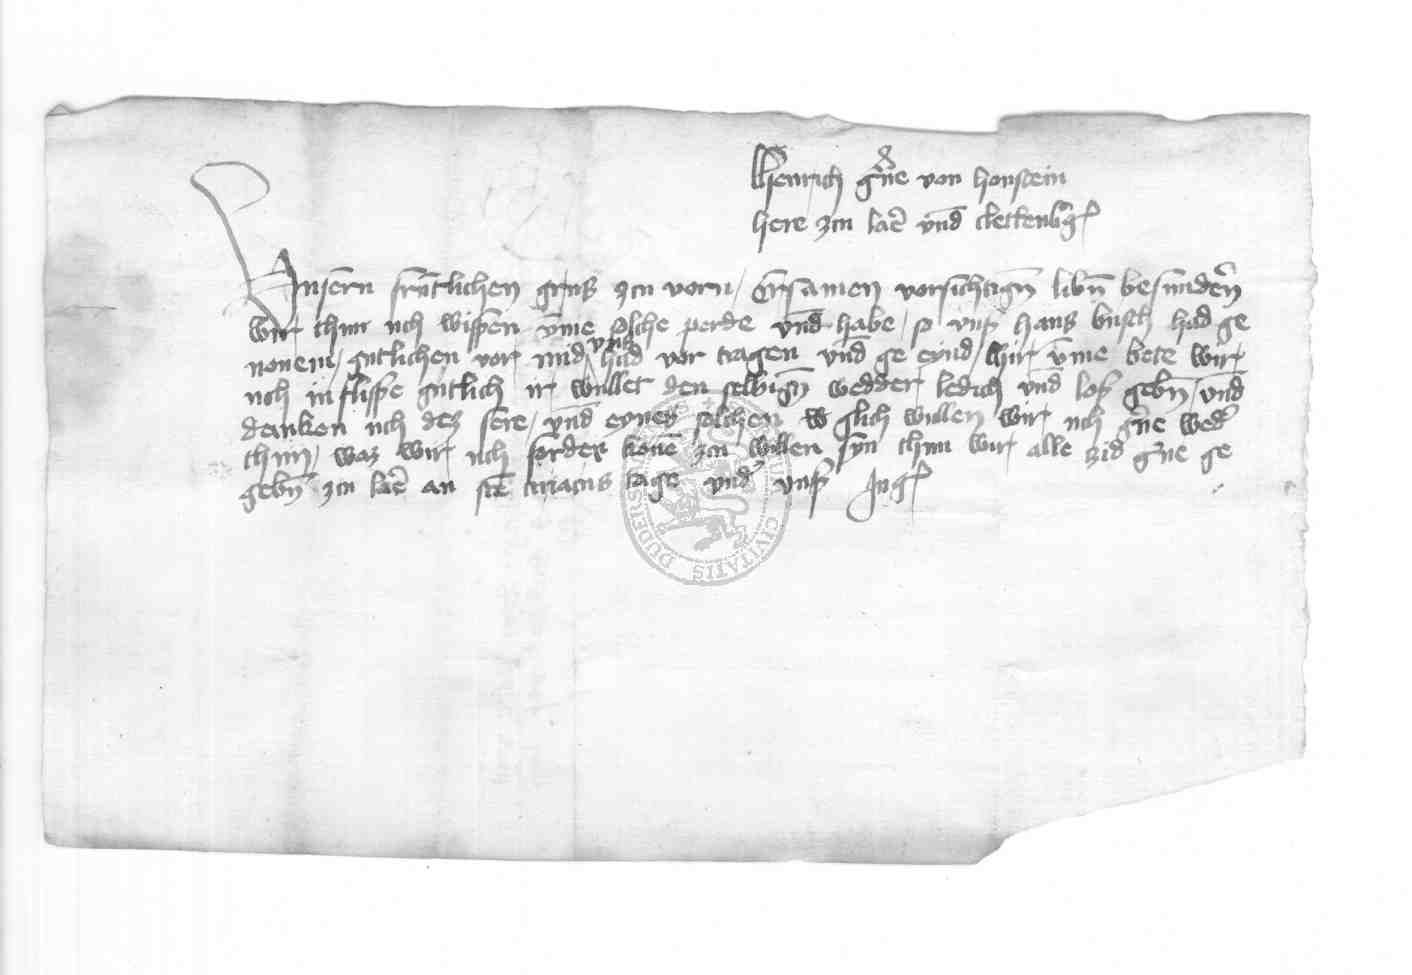 Henrich gͬue von honstein
here zcu lare vnd clettenbg
Unsern fruntlichen grus zcu vorn / Ersamen vorsichtigen libn besundern
wir thun uch wissen vme solche perde vnd habe / so vnß hans busch had ge
nomem / gutlichen vor mid vnß had vor tragen vnd ge eynd / hir vme bete wir
uch in flisse gutlich ir wullet den selbign wedder ledich vnd loß gebn vnd
danken uch dez sere / vnd eynez solchen glich wullen wir uch gne wed
thun / waz wir uch forder kone zcu willen syn thun wir alle zid gne ge
gebn zcu lare an tage vnd vnß Ing
CIVITATIS DUDERS